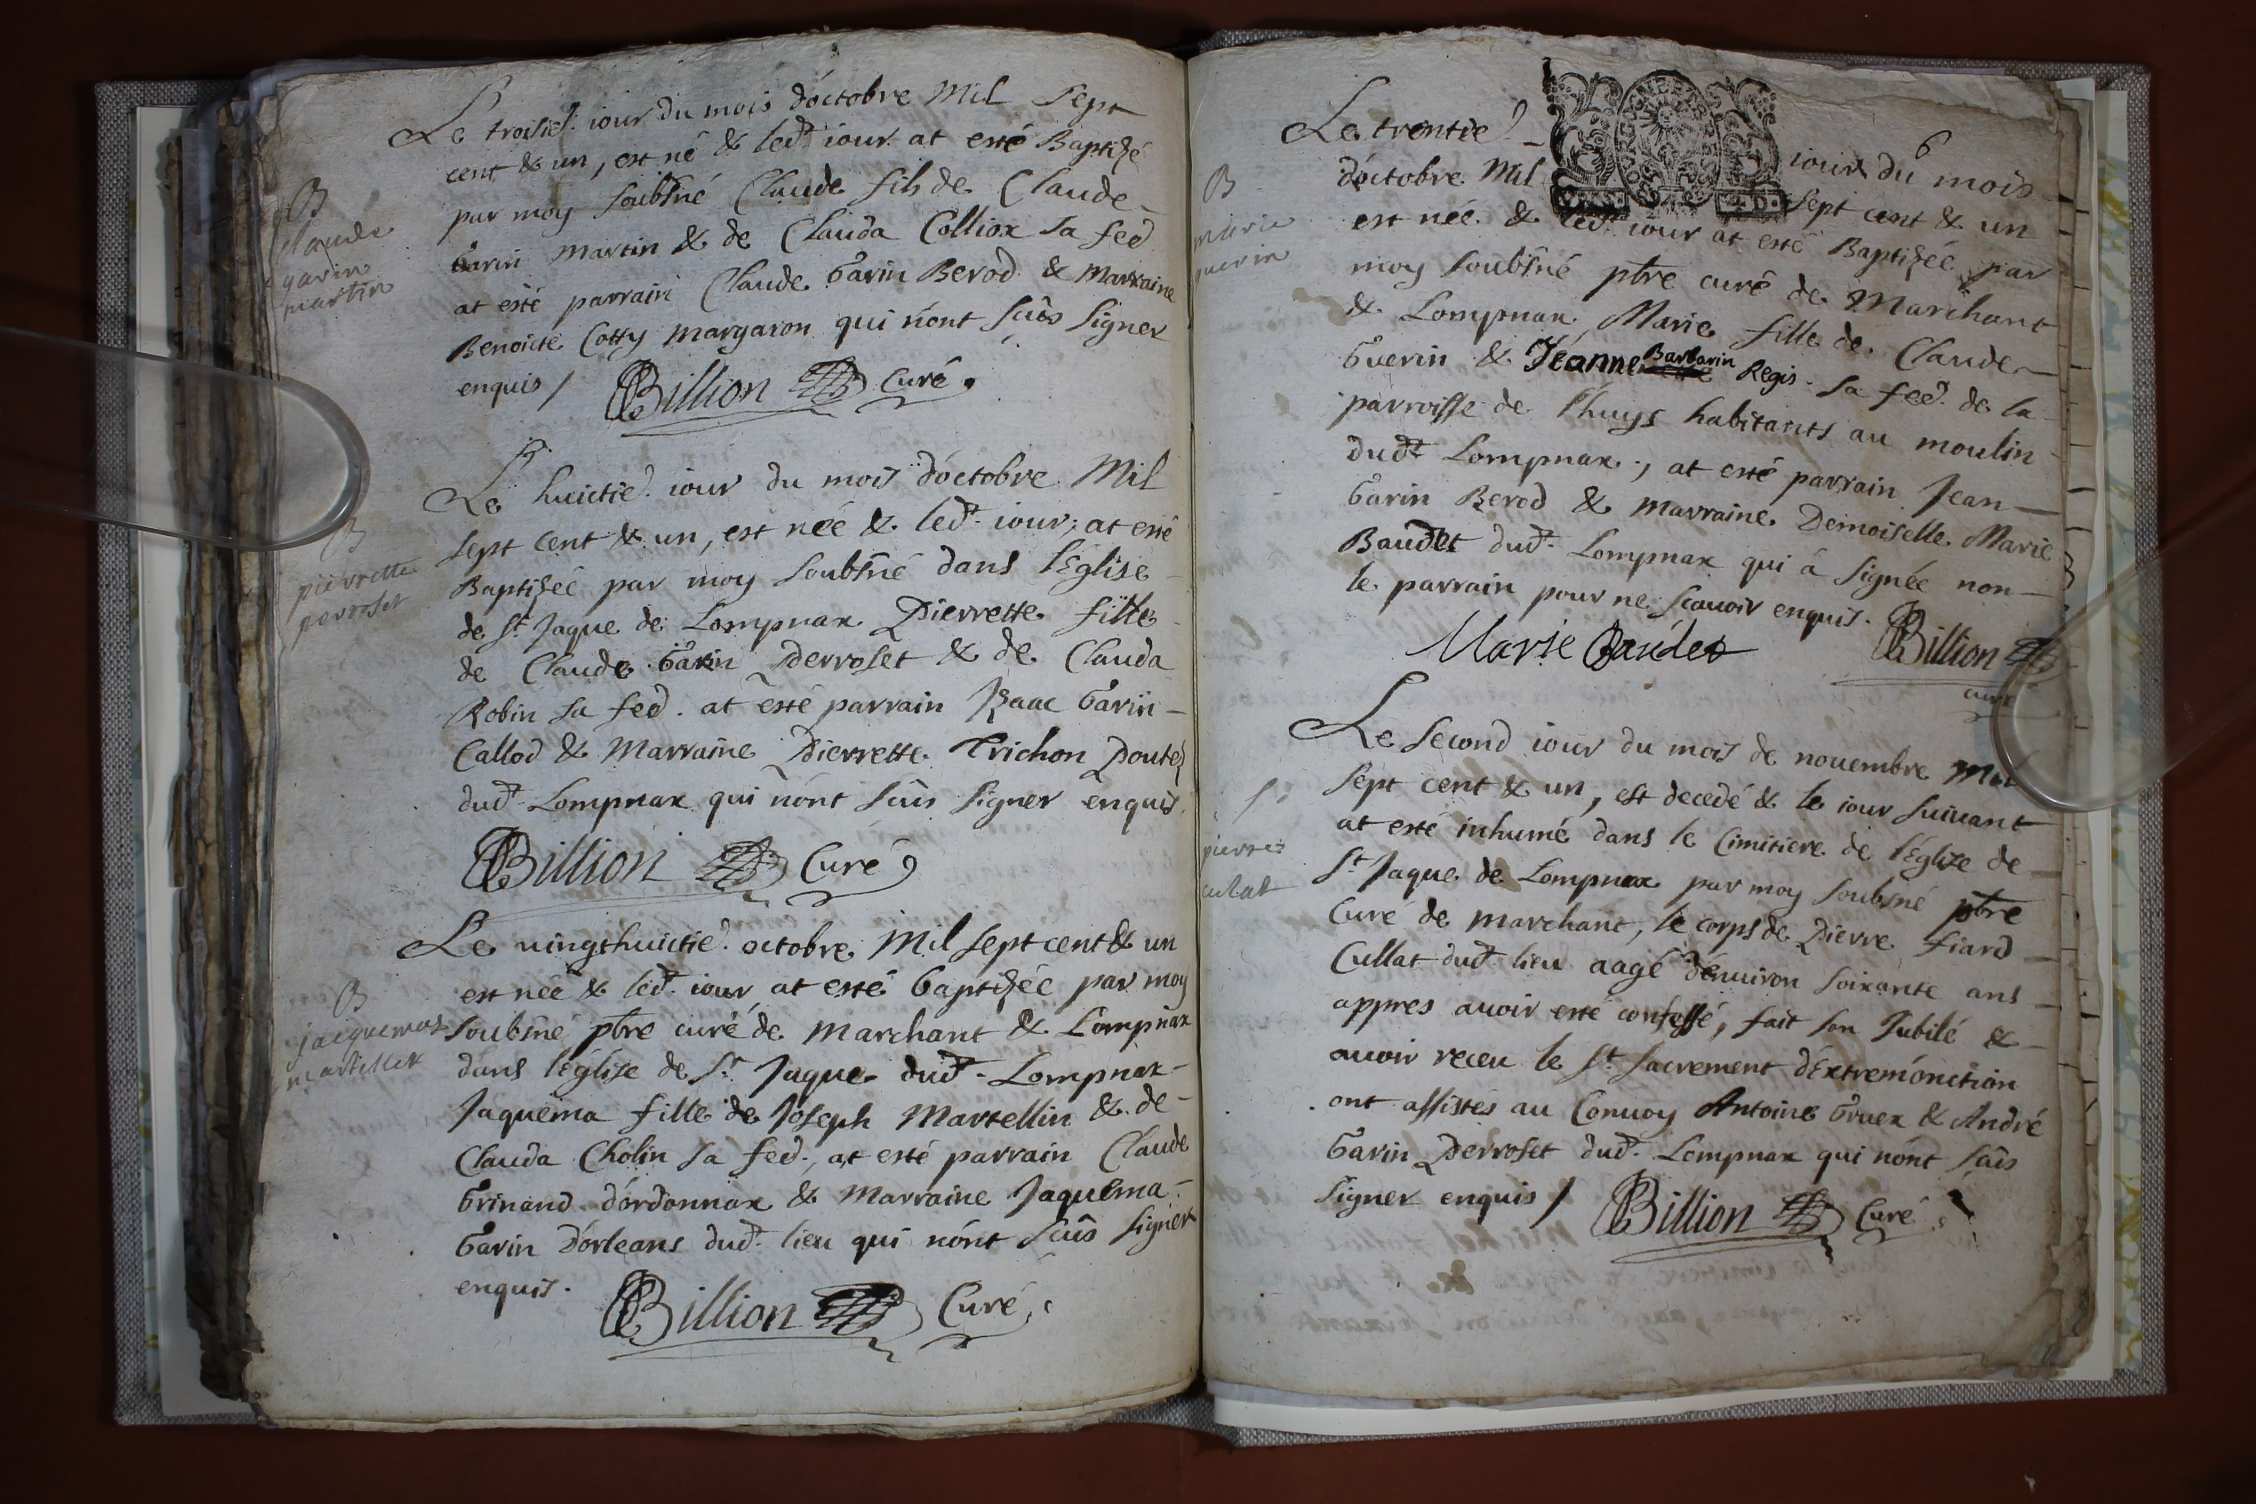 Le troisie. iour du mois d'octobre Mil sept
cent & un, est né & led.t iour at esté Baptizé
par moy soubsné Claude fils de Claude
Garin Martin & de Clauda Colliox sa fee.
at esté parrain Claude Garin Berod & Marraine
Benoicte Cotty Margaron qui n'ont sçûs signer
enquis / Billion Curé.
B
claude
garin
martin
Le huictie. iour du mois d'octobre Mil
sept cent & un, est née & led.t iour, at esté
Baptizée par moy soubsné dans l'Église
de S.t Jaque de Lompnax Pierrette fille
de Claude Garin Perroset & de Clauda
Robin sa fee. at esté parrain Isaac Garin
Callod & Marraine Pierrette Trichon Doute
dud.t Lompnax qui n'ont sçûs signer enquis.
Billion Curé
B
pierrette
perroset
Le vingthuictie. octobre Mil sept cent & un
est née & led.t iour at esté baptizée par moy
soubsné pbre curé de Marchant & Lompnax
dans l'Église de S.t Jaque dud.t Lompnax
Jaquema fille de Joseph Martellin & de
Clauda Cholin sa fee., at esté parrain Claude
Grinand d'ordonnax & Marraine Jaquema
Garin d'orleans dud.t lieu qui n'ont sçûs signer
enquis. Billion Curé
B
jacquemas
Le trentie
6
iour du mois
d'octobre Mil sept cent & un
est née & led.t iour at esté Baptizée par
moy soubsné pbre curé de Marchant
& Lompnax, Marie fille de Claude
Guerin & Jeanne Barbarin Regis sa fee. de la
parroisse de Lhuys habitants au moulin
dud.t Lompnax, at esté parrain Jean
Garin Berod & marraine Demoiselle Marie
Baudet dud.t Lompnax qui a signée non
le parrain pour ne sçavoir enquis.
Marie Baudet Billion
curé
B
marie
guerin
Le second iour du mois de nouembre Mil
sept cent & un, est decedé & le iour suiuant
at esté inhumé dans le Cimitiere de l'Églize de
S.t Jaque de Lompnax par moy soubsné pbre
Curé de Marchant, le corps de Pierre fiard
Cullat dud.t lieu aagé d'enuiron soixante ans
appres auoir esté confessé, fait son Jubilé &
auoir receu le S.t Sacrement d'Extremonction
ont assistés au Conuoy Antoine Gruex & André
Garin Perroset dud.t Lompnax qui n'ont sçûs
signer enquis / Billion Curé
pierre
culat